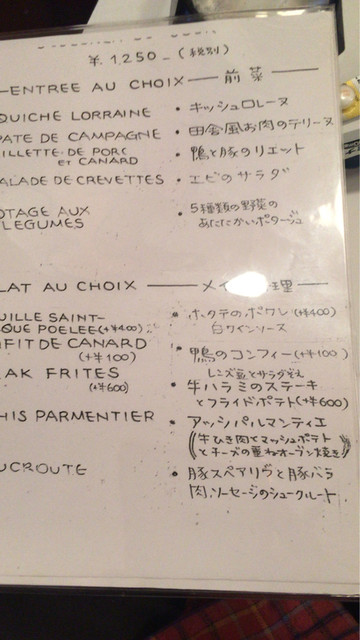 ¥.1,250.-(税別)
ENTREE AU CHOIX — 前菜
QUICHE LORRAINE • キッシュロレーヌ
PATE DE CAMPAGNE • 田舎風お肉のテリーヌ
ILLETTE DE PORC • 鴨と豚のリエット
ET CANARD
ALADE DE CREVETTES • エビのサラダ
OTAGE AUX • 5種類の野菜の
LEGUMES あたたかいポタージュ
LAT AU CHOIX — メイン料理
UILLE SAINT- • ホタテのポワレ(+¥400)
QUE POELEE(+¥400) 白ワインソース
NFIT DE CANARD • 鴨のコンフィー(+¥100)
(+¥100) レンズ豆とサラダ添え
AK FRITES • 牛ハラミのステーキ
(+¥600) とフライドポテト(+¥600)
HIS PARMENTIER • アッシパルマンティエ
(牛ひき肉とマッシュポテト
とチーズの重ねオーブン焼き)
UCROUTE • 豚スペアリヴと豚バラ
肉、ソーセージのシュークルート